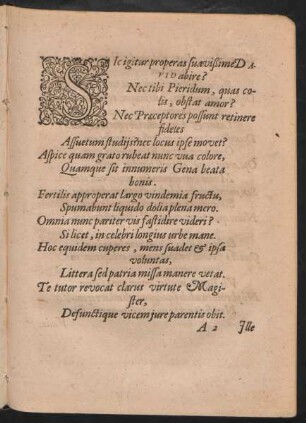 SIc igitur properas suævißime DA-
VID abire?
Nec tibi Pieridum, quas co-
lis, obstat amor?
Nec Præceptores possunt retinere
fideles
Assuetum studijs? nec locus ipse movet?
Aspice quam grato rubeat nunc vua colore,
Quamque sit innumeris Gena beata
bonis.
Fertilis approperat largo vindemia fructu,
Spumabunt liquido dolia plena mero.
Omnia nunc pariter vis fastidire videri?
Si licet, in celebri longius urbe mane.
Hoc equidem cuperes, mens suadet & ipsa
voluntas,
Littera sed patria missa manere vetat.
Te tutor revocat clarus virtute Magi-
ster,
Defunctique vicem jure parentis obit.
A 2 Ille